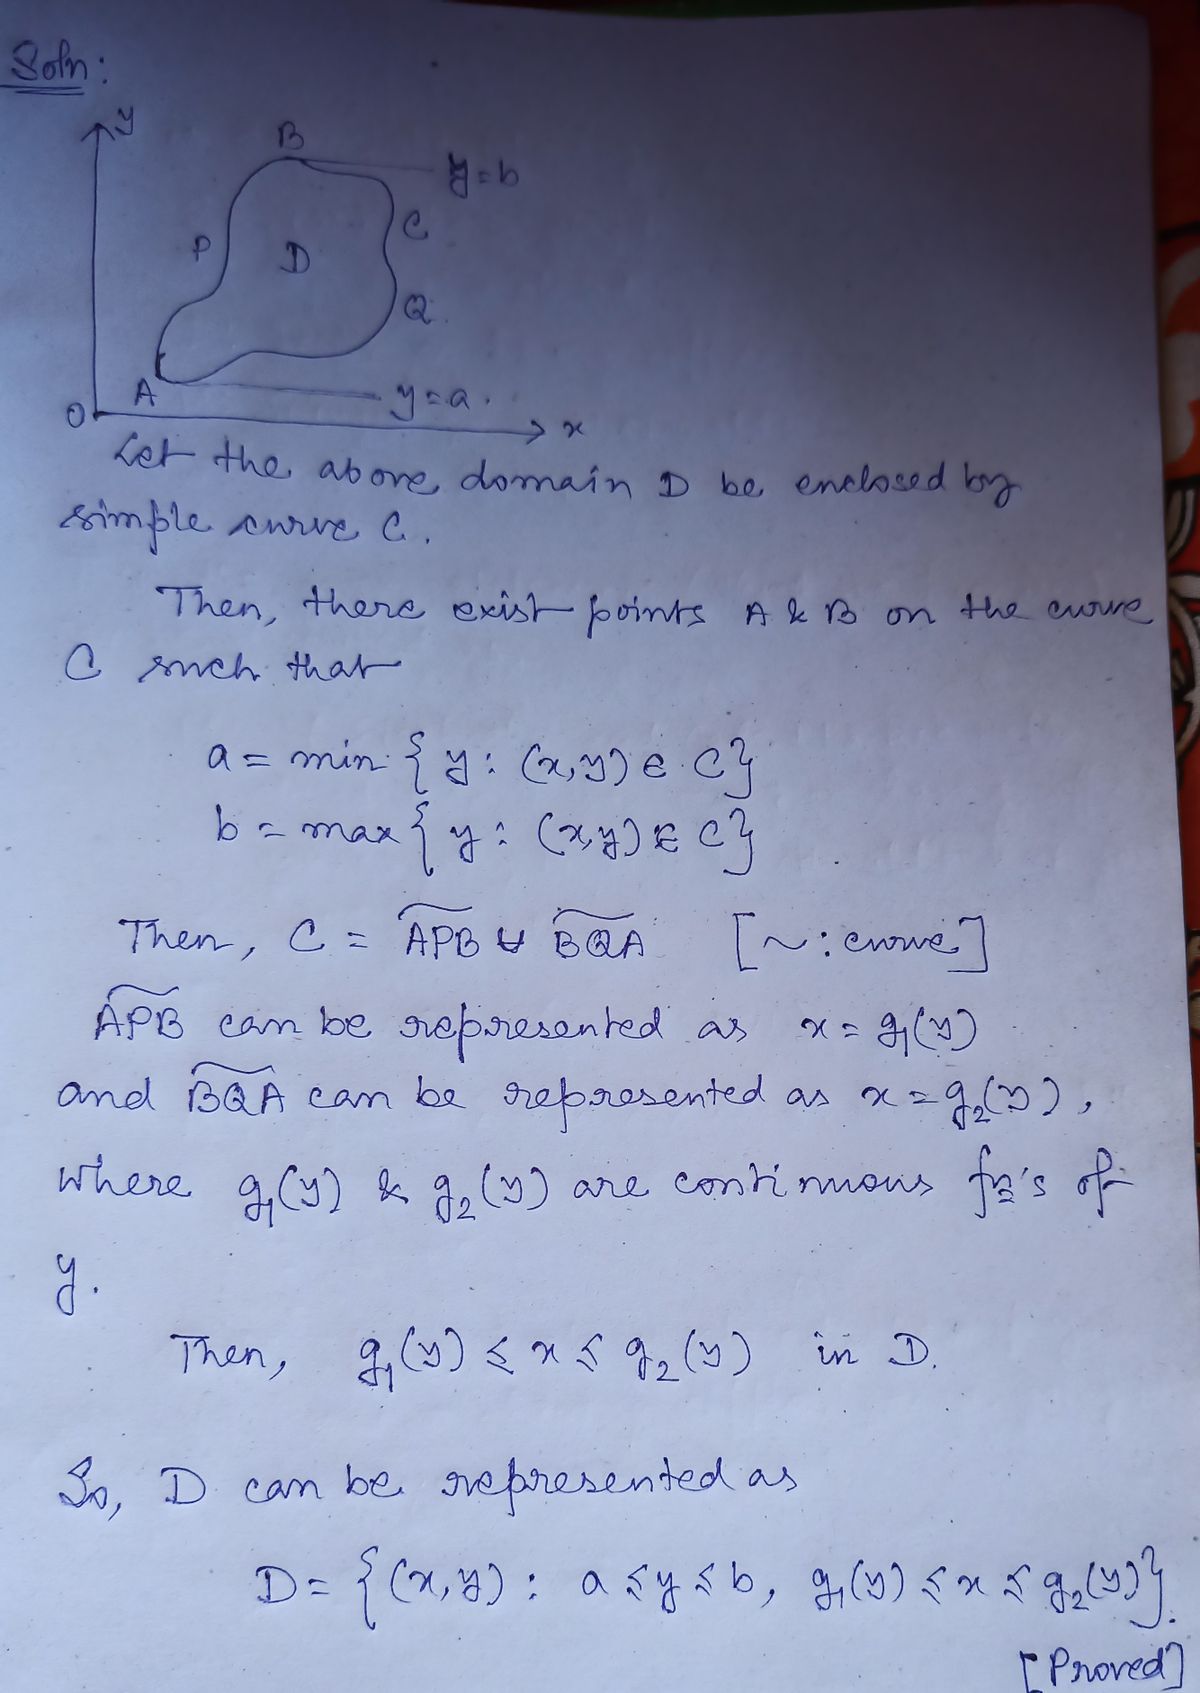 Soln:
y
B
y=b
P
D
C
Q
A
y=a.
O
x
Let the above domain D be enclosed by
simple curve C.
Then, there exist points A & B on the curve
C such that
a = min {y: (x,y) ∈ C}
b = max {y: (x,y) ∈ C}
Then, C = A͡PB ∪ B͡QA [~: curve]
A͡PB can be represented as x = g₁(y)
and B͡QA can be represented as x = g₂(y),
where g₁(y) & g₂(y) are continuous fn's of
y.
Then, g₁(y) ≤ x ≤ g₂(y) in D.
So, D can be represented as
D = {(x,y): a ≤ y ≤ b, g₁(y) ≤ x ≤ g₂(y)}.
[Proved]